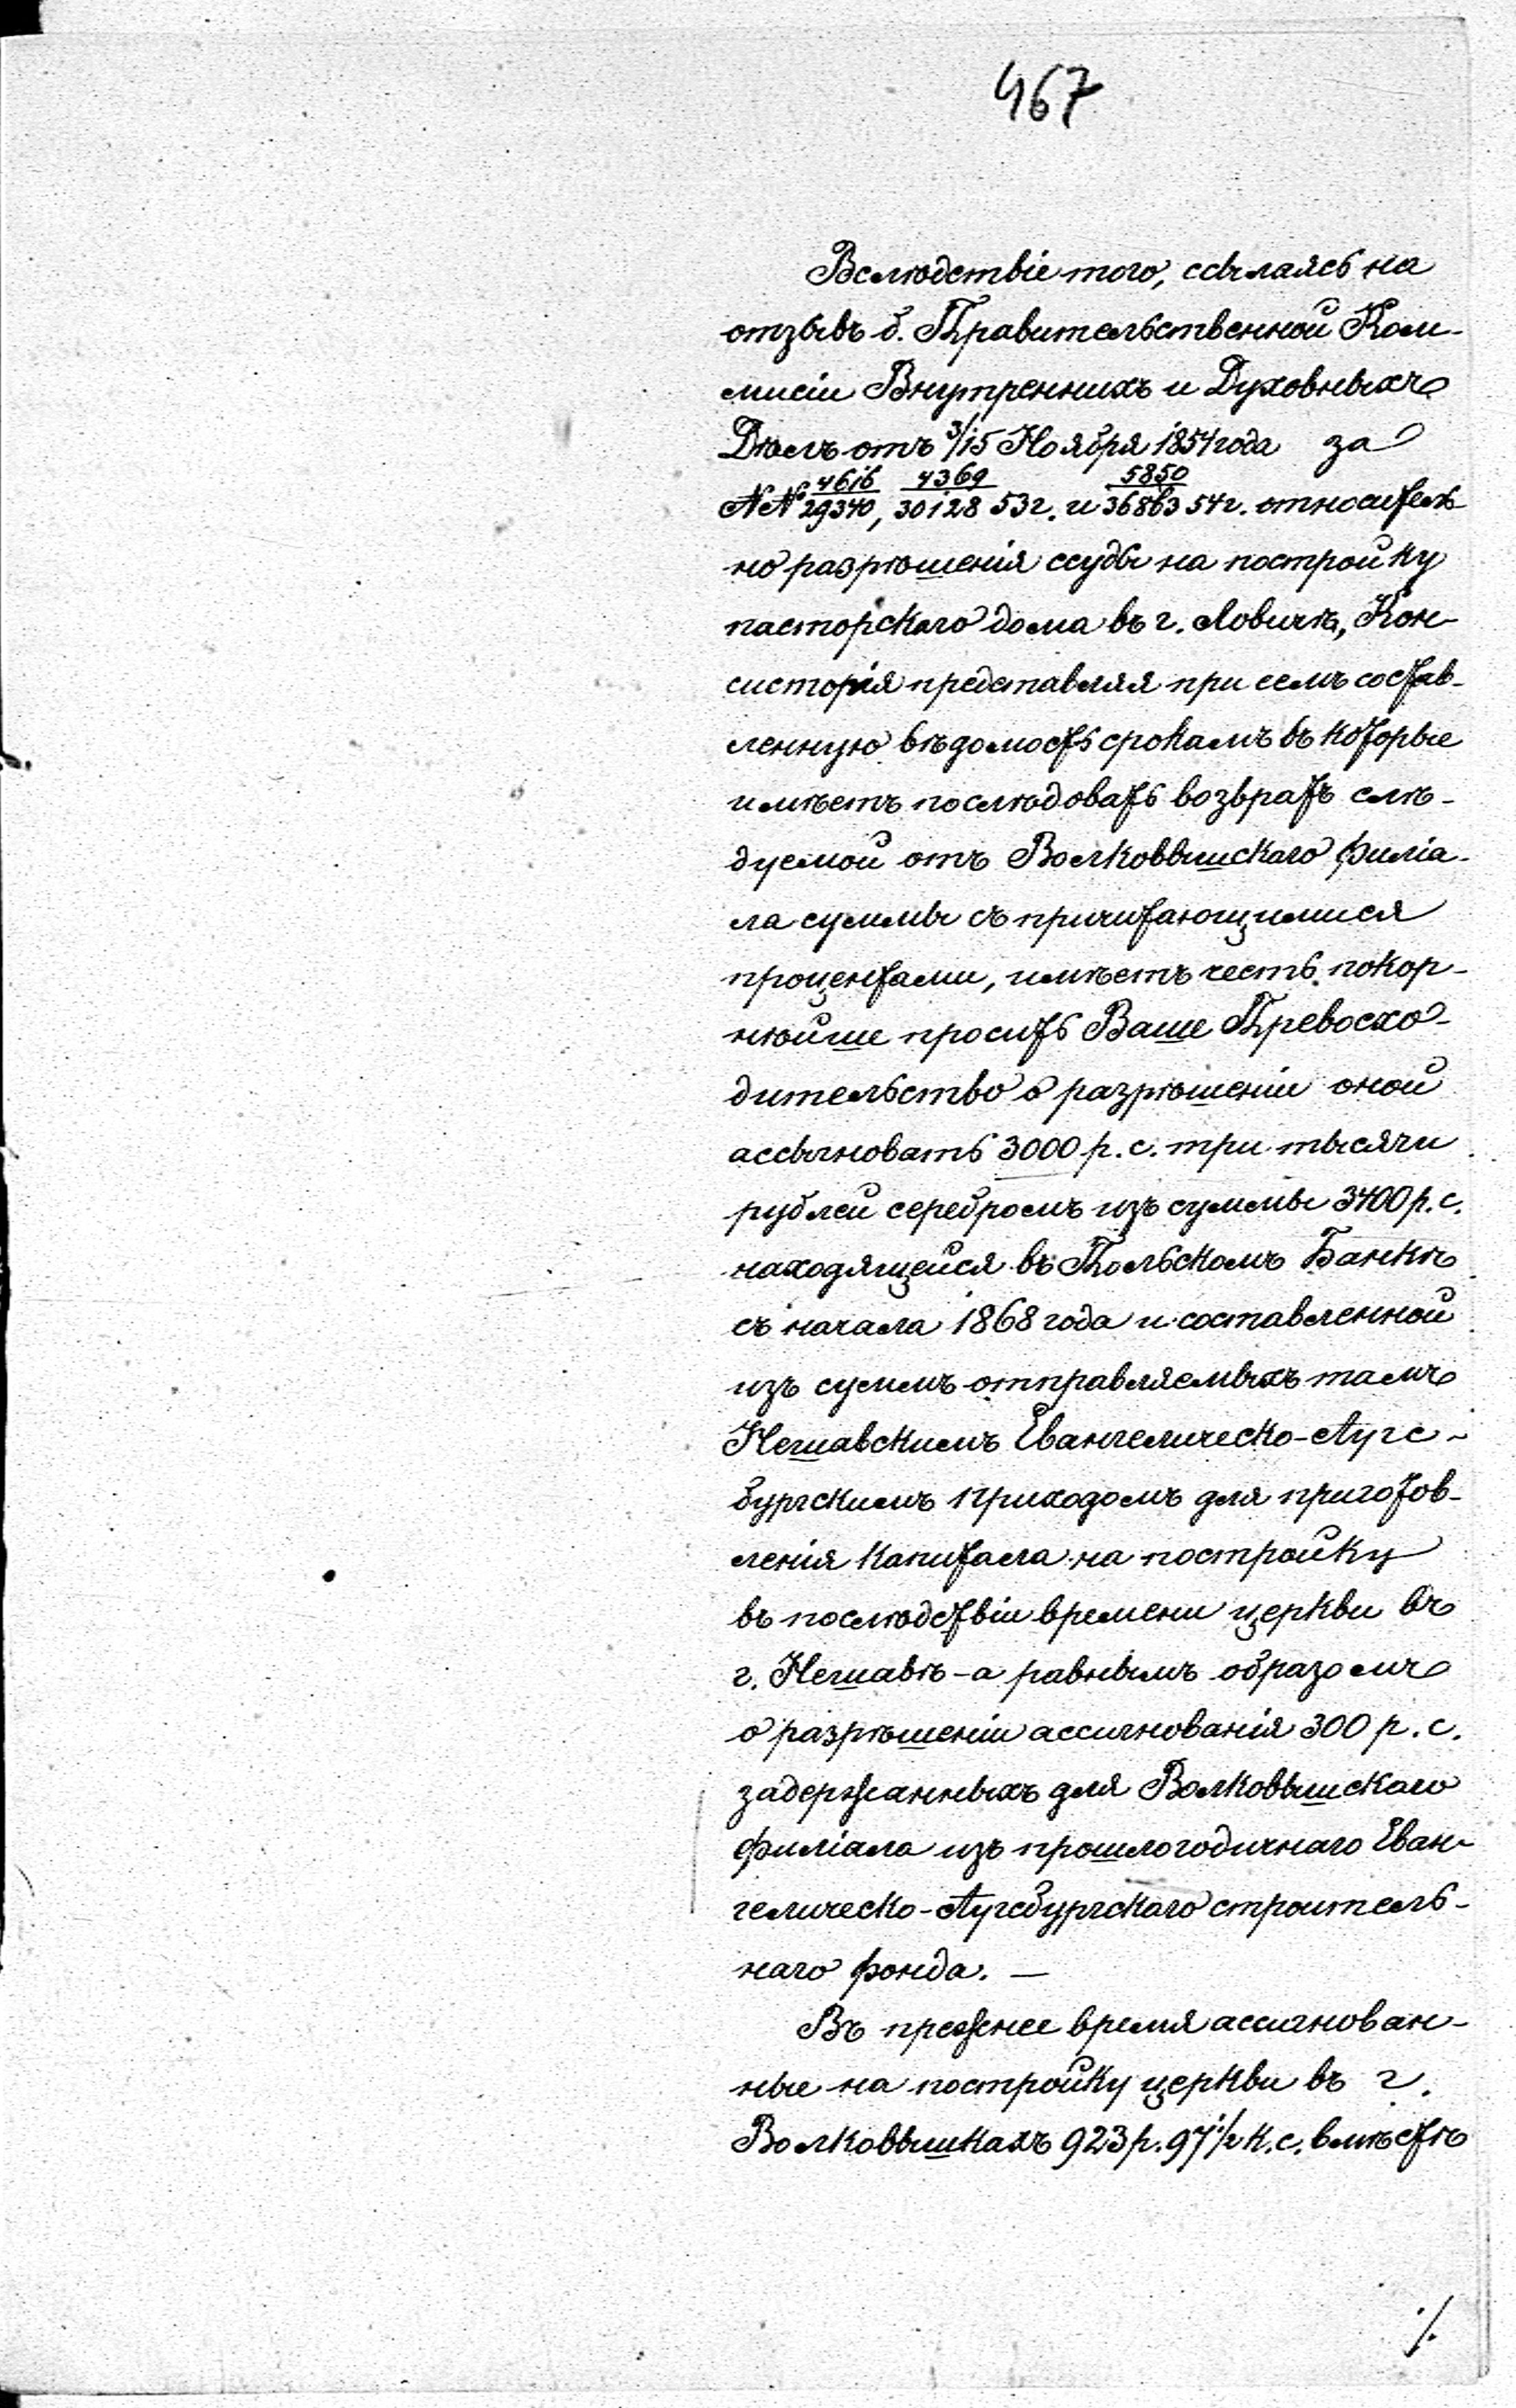 467
Вслѣдствіе того, ссылаясь на
отзывъ б. Правительственной Ком-
мисіи Внутреннихъ и Духовныхъ
Дѣлъ отъ 3/15 Ноября 1854 года за
№№ 4616/29340, 4369/30128 53 г. и 5850/36863 54 г. относитель
но разрѣшенія ссуды на постройку
пасторскаго дома въ г. Ловичѣ, Кон-
систорія представляя при семъ состав-
ленную вѣдомость срокамъ въ которые
имѣетъ послѣдовать возвратъ слѣ-
дуемой отъ Волковышскаго филіа-
ла суммы съ причитающимися
процентами, имѣетъ честь покор-
нѣйше просить Ваше Превосхо-
дительство о разрѣшеніи оной
ассыгновать 3000 р. с. три тысячи
рублей серебромъ изъ суммы 3400 р. с.
находящейся въ Польскомъ Банкѣ
съ начала 1868 года и составленной
изъ суммъ отправляемыхъ тамъ
Нешавскимъ Евангелическо-Аугс-
бургскимъ приходомъ для приготов-
ленія капитала на постройку
въ послѣдствіи времени церкви въ
г. Нешавѣ - а равнымъ образомъ
о разрѣшеніи ассигнованія 300 р. с.
задержанныхъ для Волковышскаго
филіала изъ прошлогодичнаго Еван-
гелическо-Аугсбургскаго строитель-
наго фонда. —
Въ прежнее время ассигнован-
ные на постройку церкви въ г.
Волковышкахъ 923 р. 97 1/2 к. с. вмѣстѣ
./.